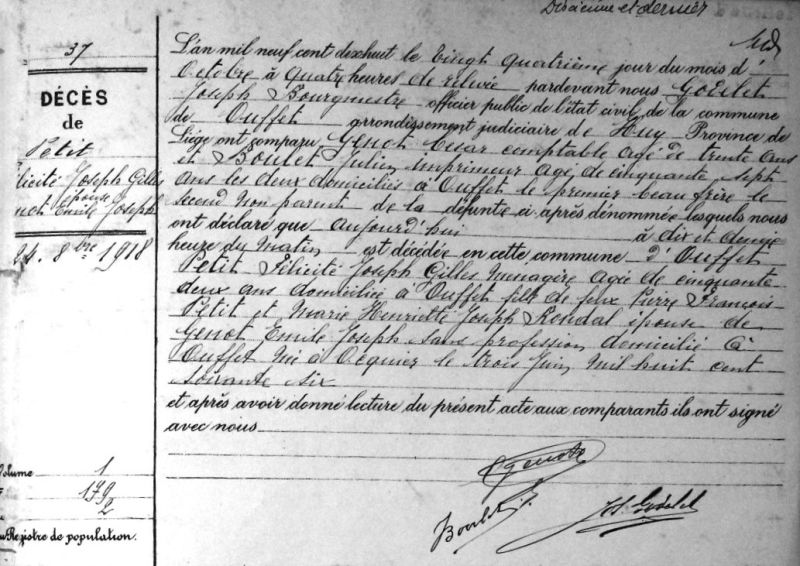 Dixième et dernier
37
DÉCÈS
de
Petit
licité Joseph Gilles
épouse
not Emile Joseph
24. 8bre 1918
Volume 1
179
2
Registre de population.
L'an mil neuf cent dixhuit le vingt quatrième jour du mois d'
Octobre à quatre heures de relevée pardevant nous Goulet
Joseph Bourgmestre officier public de l'état civil de la commune
de Ouffet arrondissement judiciaire de Huy Province de
Liége ont comparu Genot César comptable agé de trente ans
et Boulet Julien Imprimeur agé de cinquante sept
ans les deux domiciliés à Ouffet le premier beau frère le
second non parent de la défunte ci après dénommée lesquels nous
ont déclaré que aujourd'hui à dix et demie
heure du matin est décédée en cette commune d'Ouffet
Petit Félicité Joseph Gilles ménagère agée de cinquante
deux ans domiciliée à Ouffet fille de feux Pierre François
Petit et Marie Henriette Joseph Rondal épouse de
Genot Emile Joseph sans profession domicilié à
Ouffet Née à Ocquier le trois Juin mil huit cent
soixante six
et après avoir donné lecture du présent acte aux comparants ils ont signé
avec nous
Genot
Boulet J.